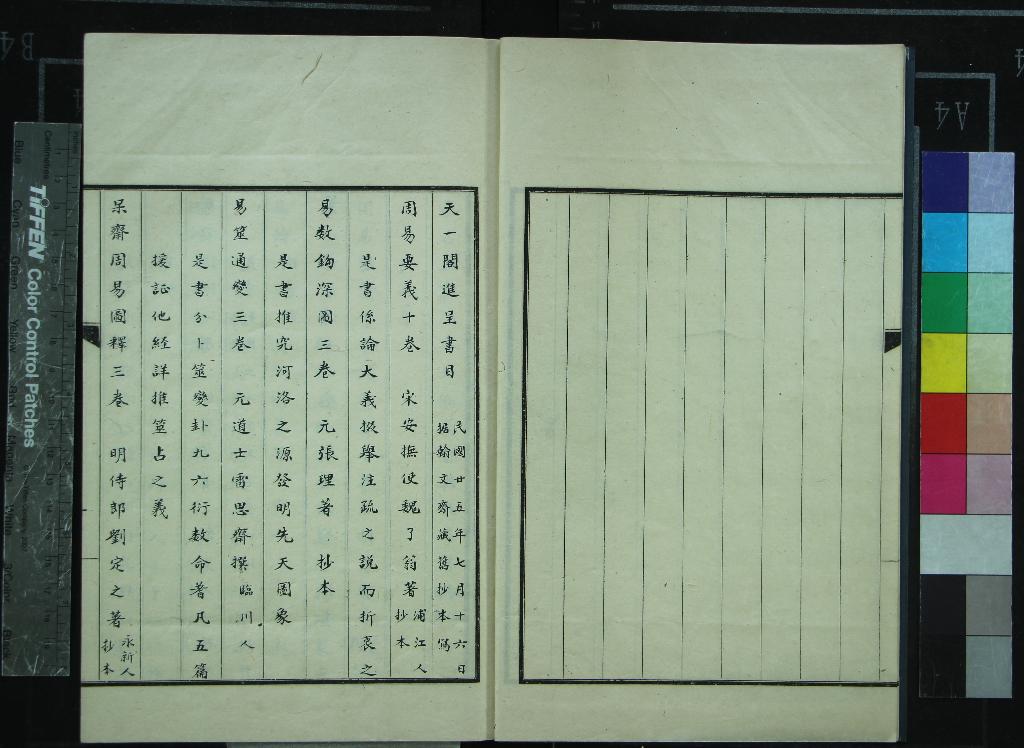 天一閣進呈書目 民國廿五年七月十六日
據翰文齋藏舊抄本寫
周易要義十卷 宋安撫使魏了翁著 浦江人
抄本
是書係論大義掇舉注疏之說而折衷之
易數鈎深圖三卷 元張理著 抄本
是書推究河洛之源發明先天圖象
易筮通變三卷 元道士雷思齋撰 臨川人
是書分卜筮變卦九六衍數命著凡五篇
援証他經詳推筮占之義
呆齋周易圖釋三卷 明侍郎劉定之著 永新人
抄本
TIFFEN Color Control Patches
Centimetres
Blue
Cyan
Green
Yellow
A4
B4